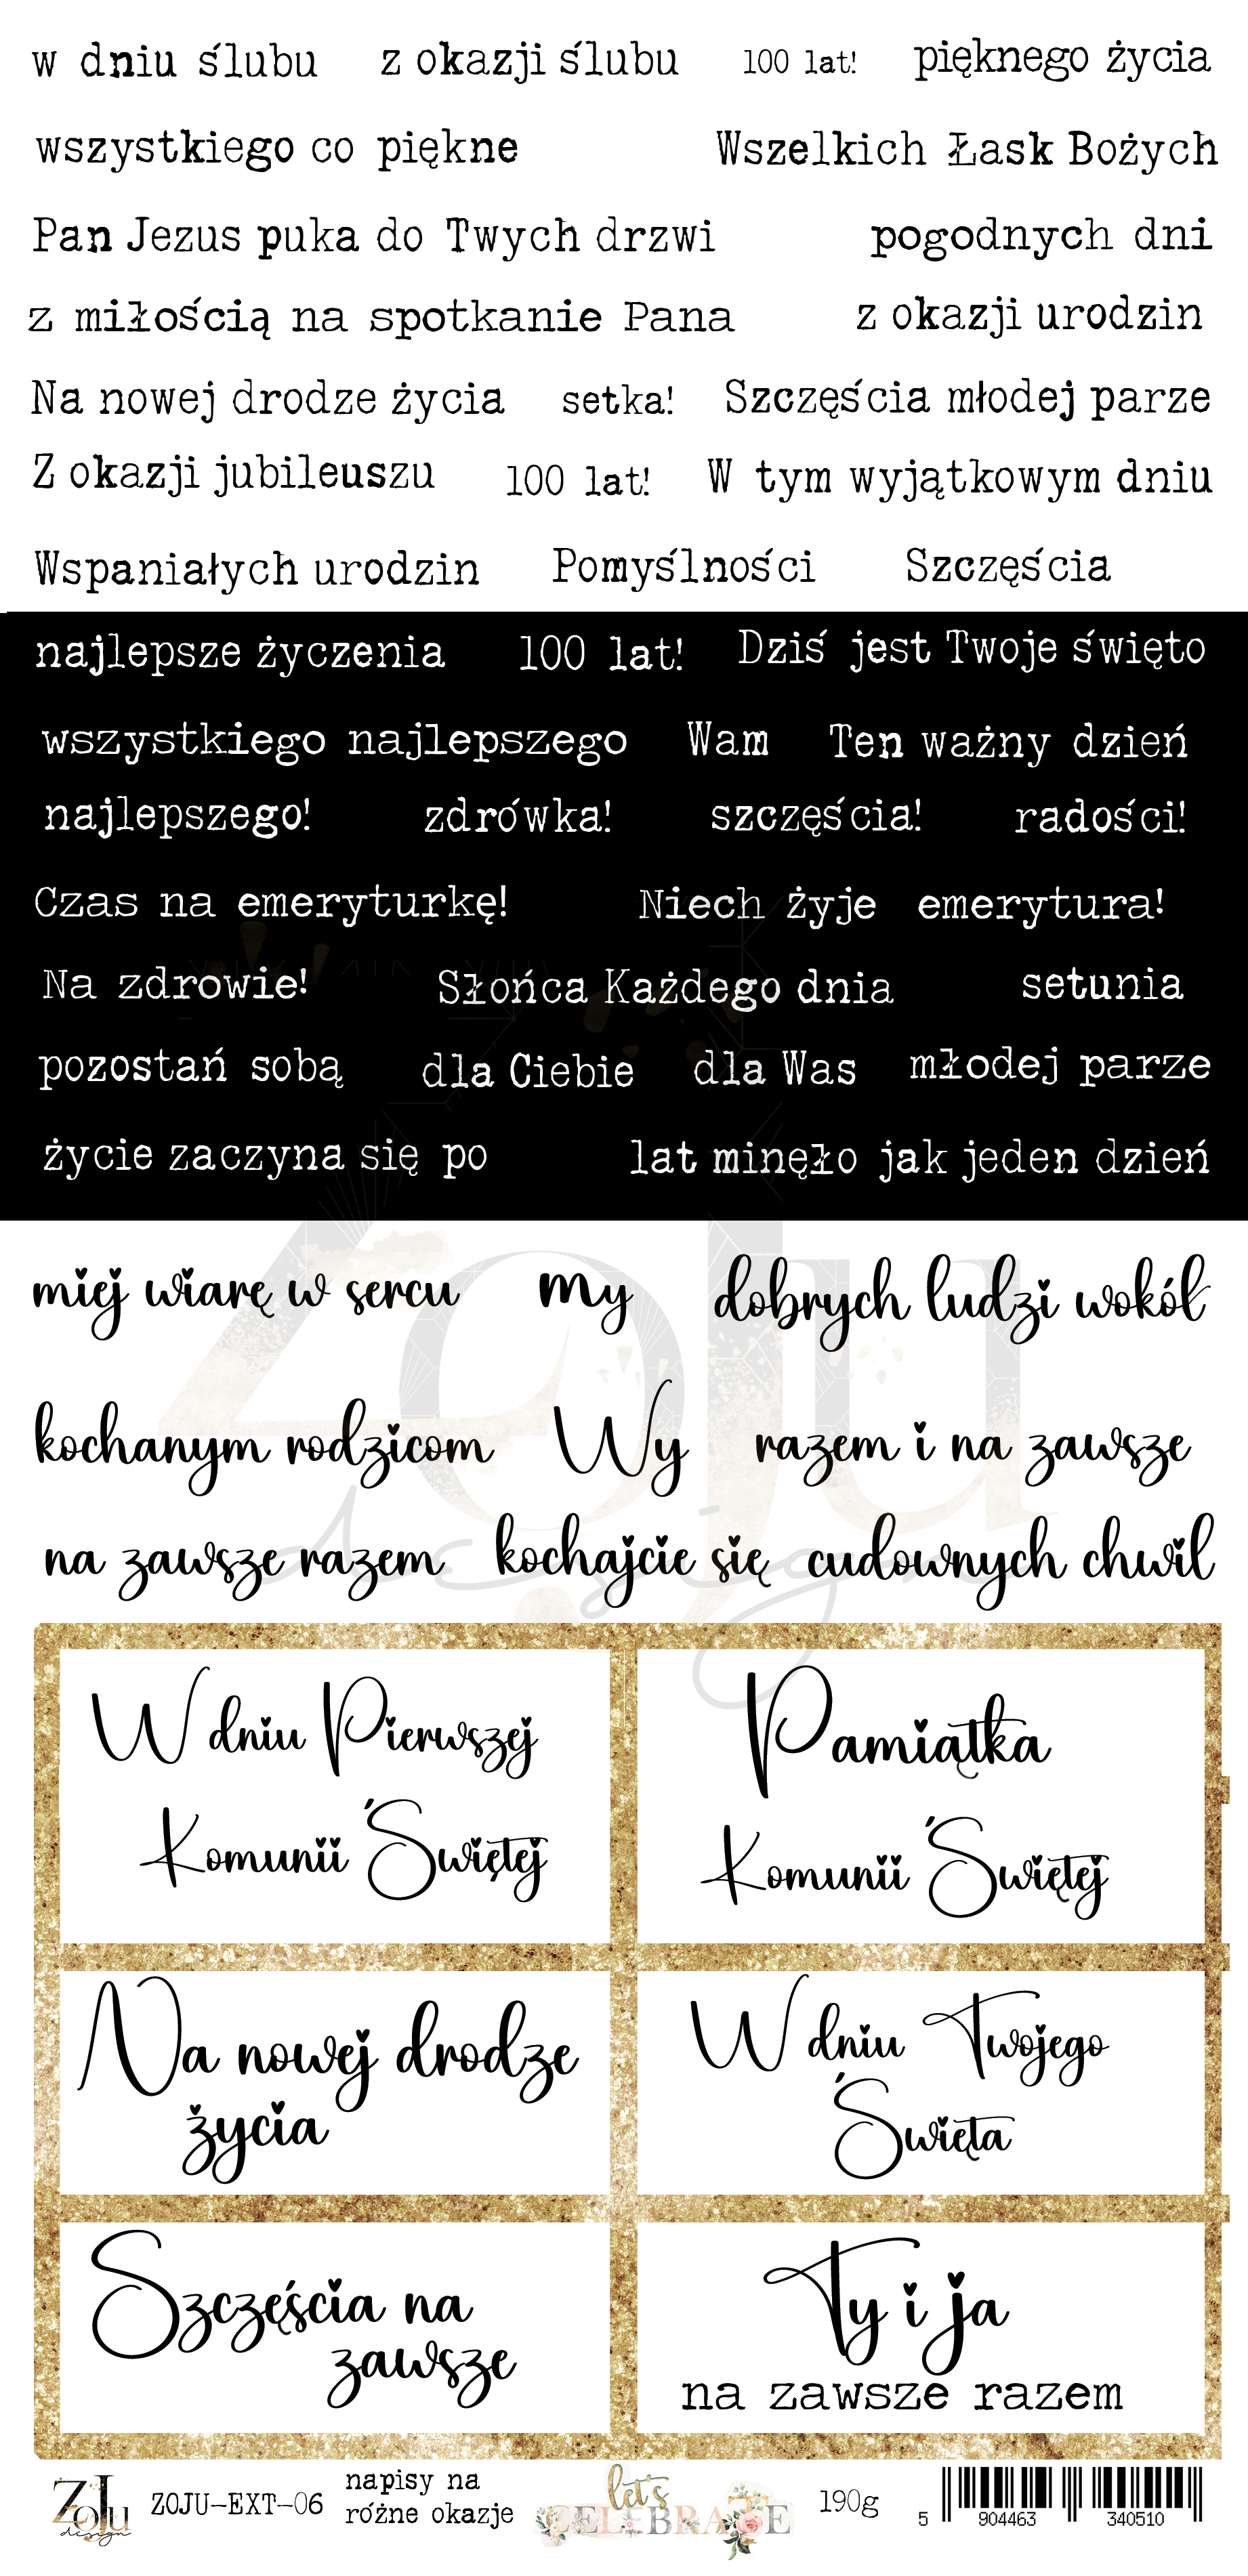 w dniu ślubu z okazji ślubu 100 lat! pięknego życia
wszystkiego co piękne Wszelkich Łask Bożych
Pan Jezus puka do Twych drzwi pogodnych dni
z miłością na spotkanie Pana z okazji urodzin
Na nowej drodze życia setka! Szczęścia młodej parze
Z okazji jubileuszu 100 lat! W tym wyjątkowym dniu
Wspaniałych urodzin Pomyślności Szczęścia
najlepsze życzenia 100 lat! Dziś jest Twoje święto
wszystkiego najlepszego Wam Ten ważny dzień
najlepszego! zdrówka! szczęścia! radości!
Czas na emeryturkę! Niech żyje emerytura!
Na zdrowie! Słońca Każdego dnia setunia
pozostań sobą dla Ciebie dla Was młodej parze
życie zaczyna się po lat minęło jak jeden dzień
miej wiarę w sercu my dobrych ludzi wokół
kochanym rodzicom Wy razem i na zawsze
na zawsze razem kochajcie się cudownych chwil
W dniu Pierwszej
Komunii Świętej
Pamiątka
Komunii Świętej
Na nowej drodze
życia
W dniu Twojego
Święta
Szczęścia na
zawsze
Ty i ja
na zawsze razem
ZoJu
design
ZOJU-EXT-06
napisy na
różne okazje
let's
CELEBRATE
190g
5 904463 340510